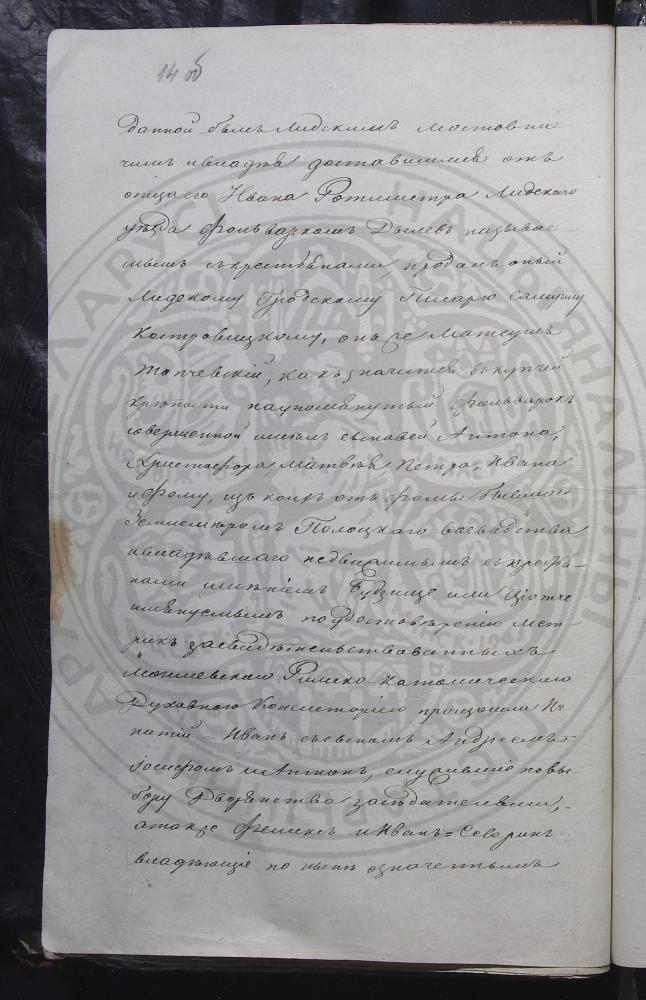 14 об
данной былъ Лидскимъ Мостовни
чимъ ивладѣя доставшимся отъ
отца его Ивана Ротмистра Лидскаго
уѣзда фольваркомъ Дылевъ называе-
мымъ съкрестьянами, продалъ оный
Лидскому Гродскому Писарю Самуилу
Костровицкому, онъ же Матеушъ
Жопчевскій, какъ значится въкупчей
крѣпости на упомянутый фольварокъ
совершенной имѣлъ сыновей Антона,
Христофора Матвѣя, Петра, Ивана
и Фому, изъ коихъ отъ Фомы бывшаго
Землемѣромъ Полоцкаго воеводства
ивладѣвшаго недвижимымъ съкрестья-
нами имѣніемъ Будзище или
имянуемымъ по удостовѣренію мет-
рикъ засвидѣтельствованныхъ
Могилевскою Римско-Католическою
Духовною Консисторіею произошли Иг-
натій-Иванъ съсыномъ Андреемъ-
Іосифомъ и Антонъ, служившіе повы-
бору Дворянства засѣдателями,
атакже Феликсъ и Иванъ=Северинъ
владѣющіе по нынѣ означеннымъ